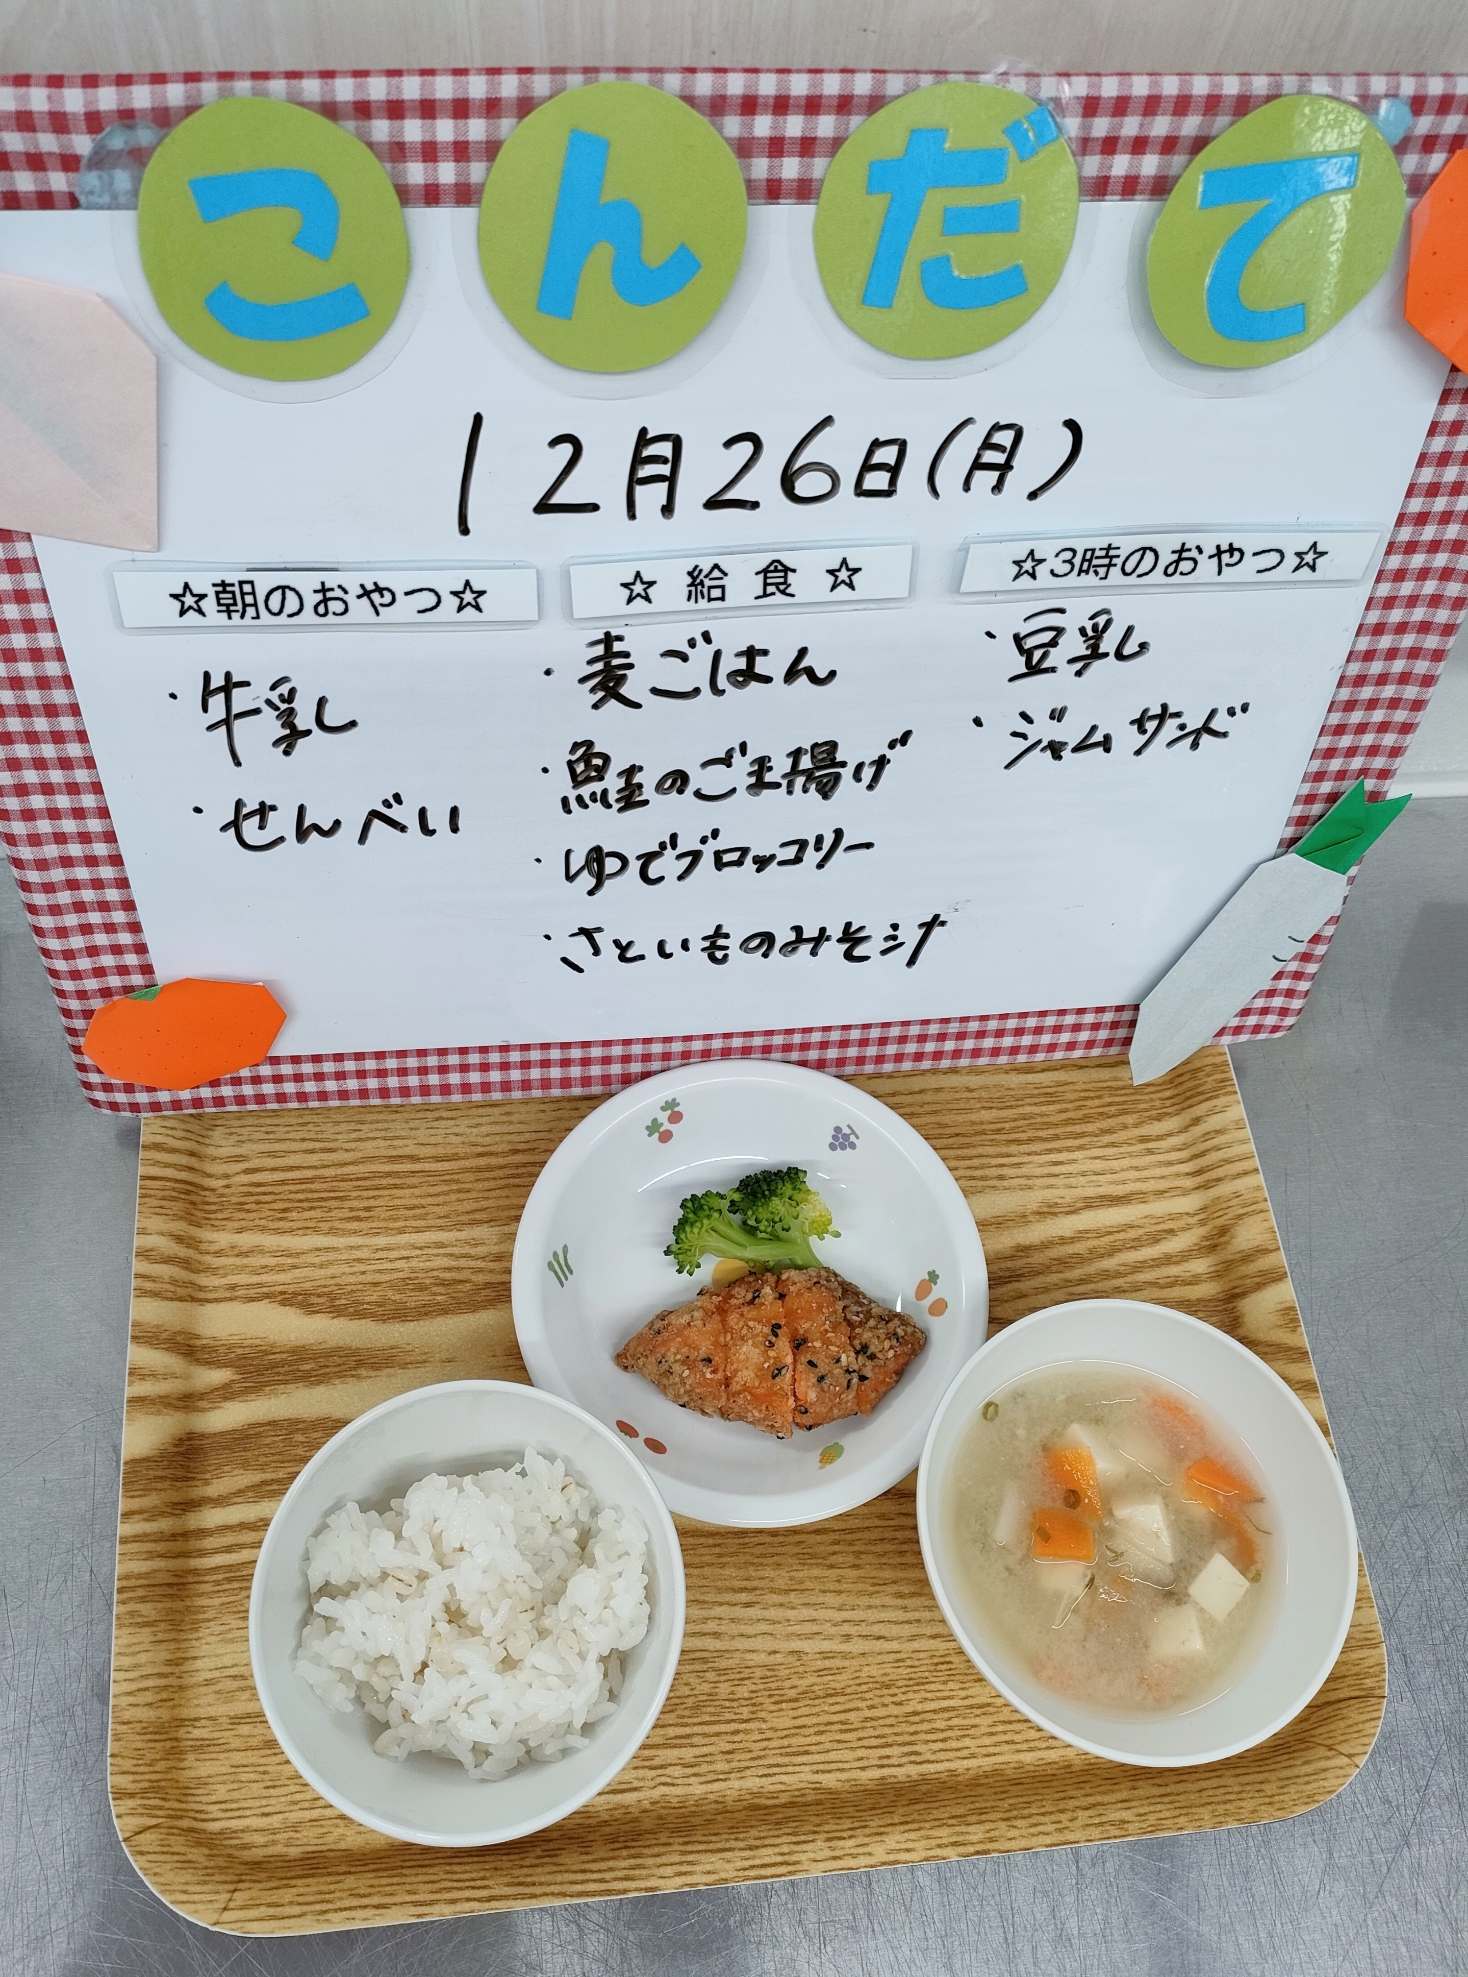 こんだて
12月26日(月)
☆朝のおやつ☆
・牛乳
・せんべい
☆ 給 食 ☆
・麦ごはん
・鮭のごま揚げ
・ゆでブロッコリー
・さといものみそ汁
☆3時のおやつ☆
・豆乳
・ジャムサンド